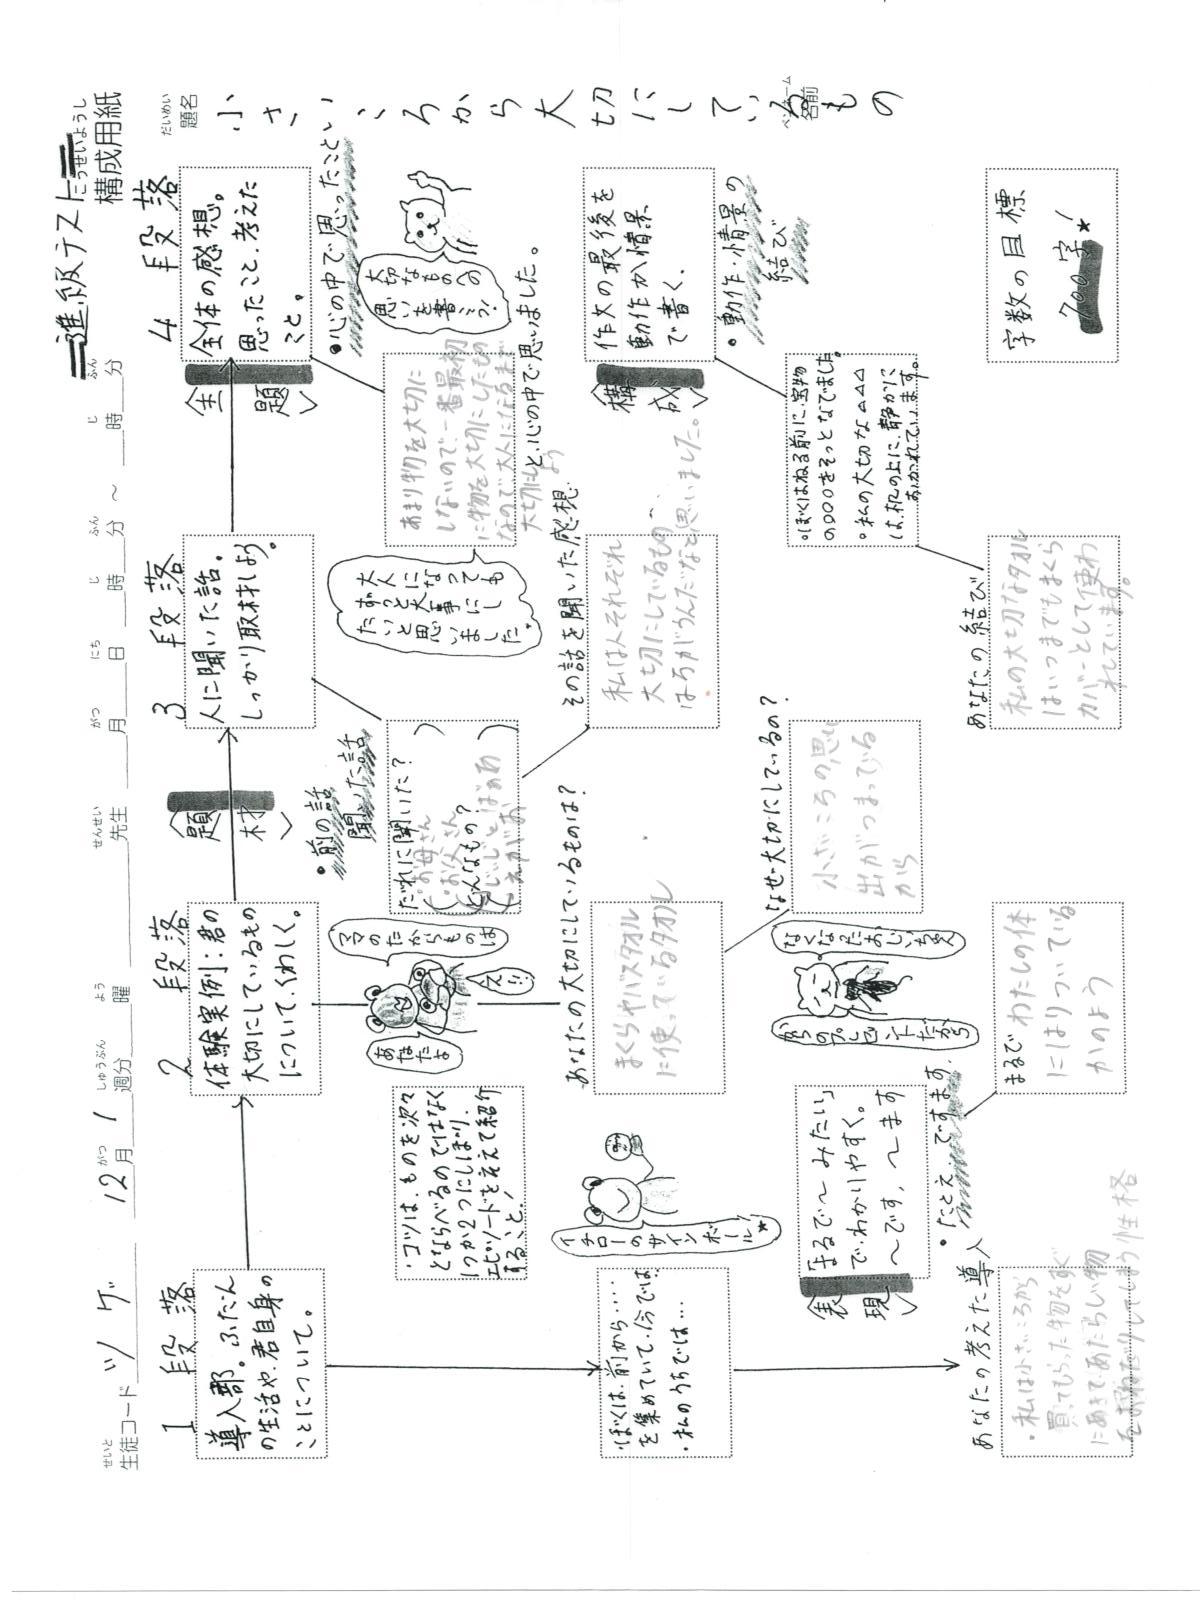 進級テスト
こうせいようし
構成用紙
せいと
生徒コード ツゲ
12月 1週分
がつ しゅうぶん
よう
曜
せんせい
先生
がつ にち じ ふん じ ふん
月 日 時 分 ～ 時 分
だいめい
題名
小さいころから大切にしているもの
ペンネーム
名前
1段落
導入部。ふだん
の生活や、君自身の
ことについて。
・ぼくは、前から……
を集めていて、今では、
・私のうちでは…
あなたの考えた導入
・私は小さいころから
買ってもらった物をすぐ
にあきてあたらしい物
をおねだりしてしまう性格
2段落
〈題材〉
体験実例：君の
大切にしているもの
について、くわしく。
・コツは、ものを次々
とならべるのではなく
1つか2つにしぼり、
エピソードを交えて紹介
すること！
ママのたからものは
あなたよ
え!!
あなたの大切にしているものは？
まくらやバスタオル
に使っているタオル
なぜ大切にしているの？
小さいころの思い
出がつまっている
から
イチローのサインボール！
なくなったおじいちゃん
からのプレゼントだから
〈表現〉
「まるで〜みたい」
で、わかりやすく。
〜です、〜ます
・たとえ ですます
まるで わたしの体
にはりついている
かのよう
3段落
人に聞いた話。
しっかり取材しよう。
・前の話
聞いた話
だれに聞いた？
・お母さん
・お父さん
どんなもの？
その話を聞いた感想
私は人それぞれ
大切にしているもの
はちがうんだなと思いました。
4段落
〈主題〉
全体の感想。
思ったこと、考えた
こと。
・心の中で思ったこと
大切なものへの
思いを書こう！
大人になっても
ずっと大事にし
たいと思いました。
あまり物を大切に
しないので一番最初
に物を大切にしたもの
なので大人になるまで
大切にしよう
と、心の中で思いました。
〈構成〉
作文の最後を
動作か情景
で書く。
・動作・情景の
結び
・ぼくはねる前に、宝物
の〇〇〇をそっとなでました。
・私の大切な△△△
は、机の上に、静かに
おかれています。
あなたの結び
私の大切なタオル
はいつまでもまくら
カバーとして使わ
れています。
字数の目標
700字！